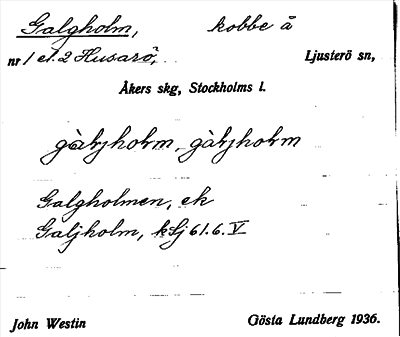 Galgholm, kobbe å
nr 1 el. 2 Husarö, Ljusterö sn,
Åkers skg, Stockholms l.
gàlyholm, gàlyholm
Galgholmen, ek
Galjholm, kSj 61.6.V
John Westin Gösta Lundberg 1936.